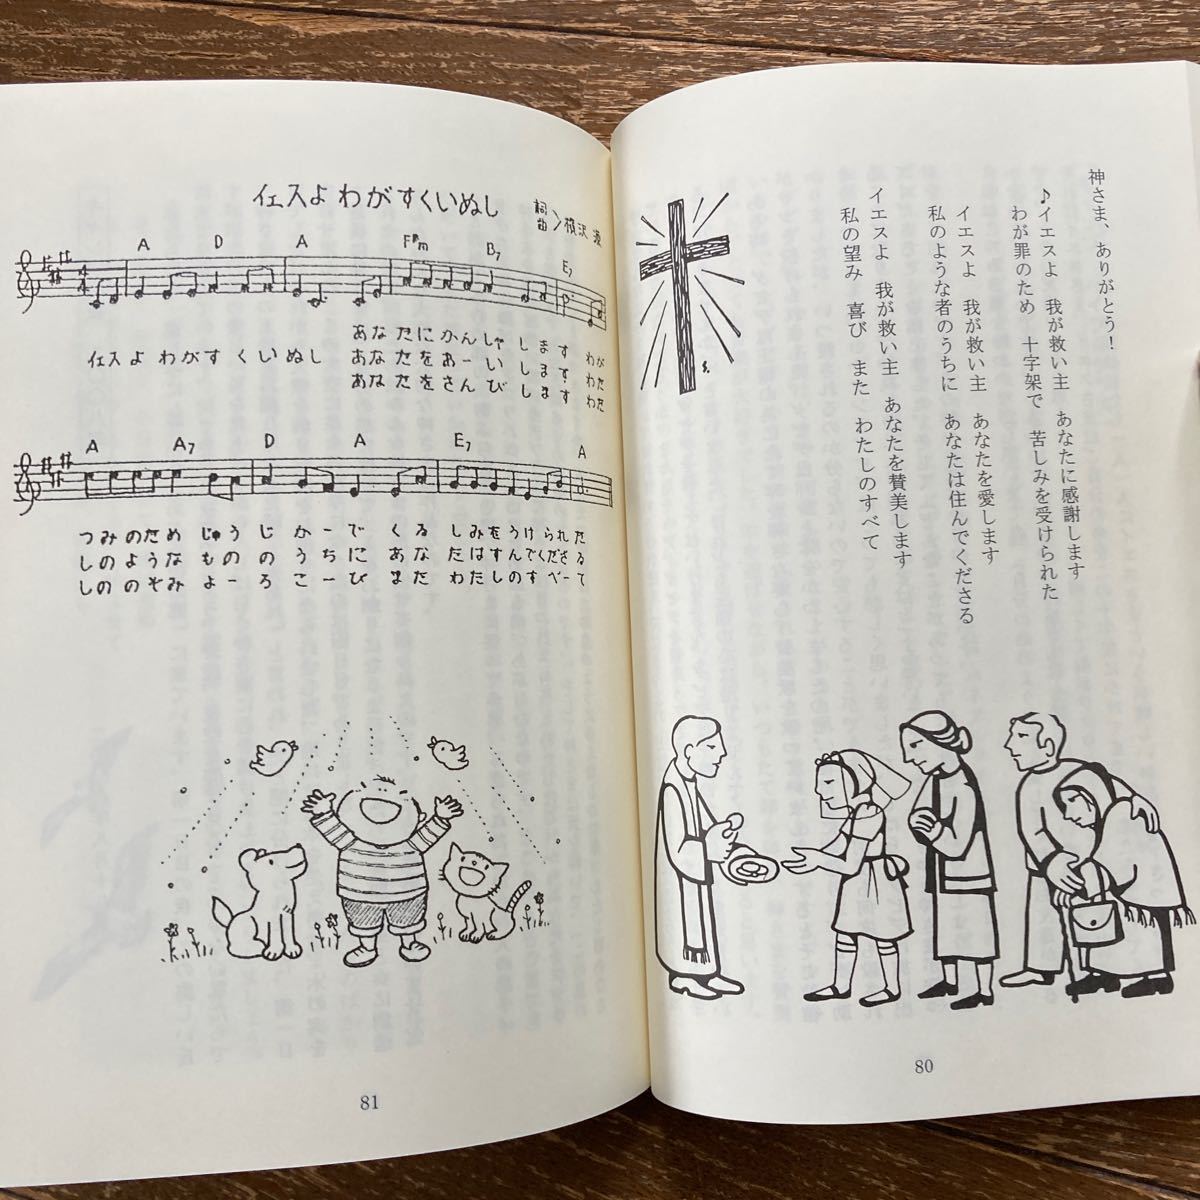 神さま、ありがとう!
♪イエスよ 我が救い主 あなたに感謝します
わが罪のため 十字架で 苦しみを受けられた
イエスよ 我が救い主 あなたを愛します
私のような者のうちに あなたは住んでくださる
イエスよ 我が救い主 あなたを賛美します
私の望み 喜び また わたしのすべて
80
イエスよ わがすくいぬし
詞
曲
A D A F#m B7 E7
あなたにかんしゃします わが
イエスよ わがすくいぬし あなたをあーいします わた
あなたをさんびします わた
A A7 D A E7 A
つみのため じゅうじかーで くるしみをうけられた
しのようなもののうちに あなたはすんでくださる
しののぞみ よーろこーび また わたしのすべーて
81